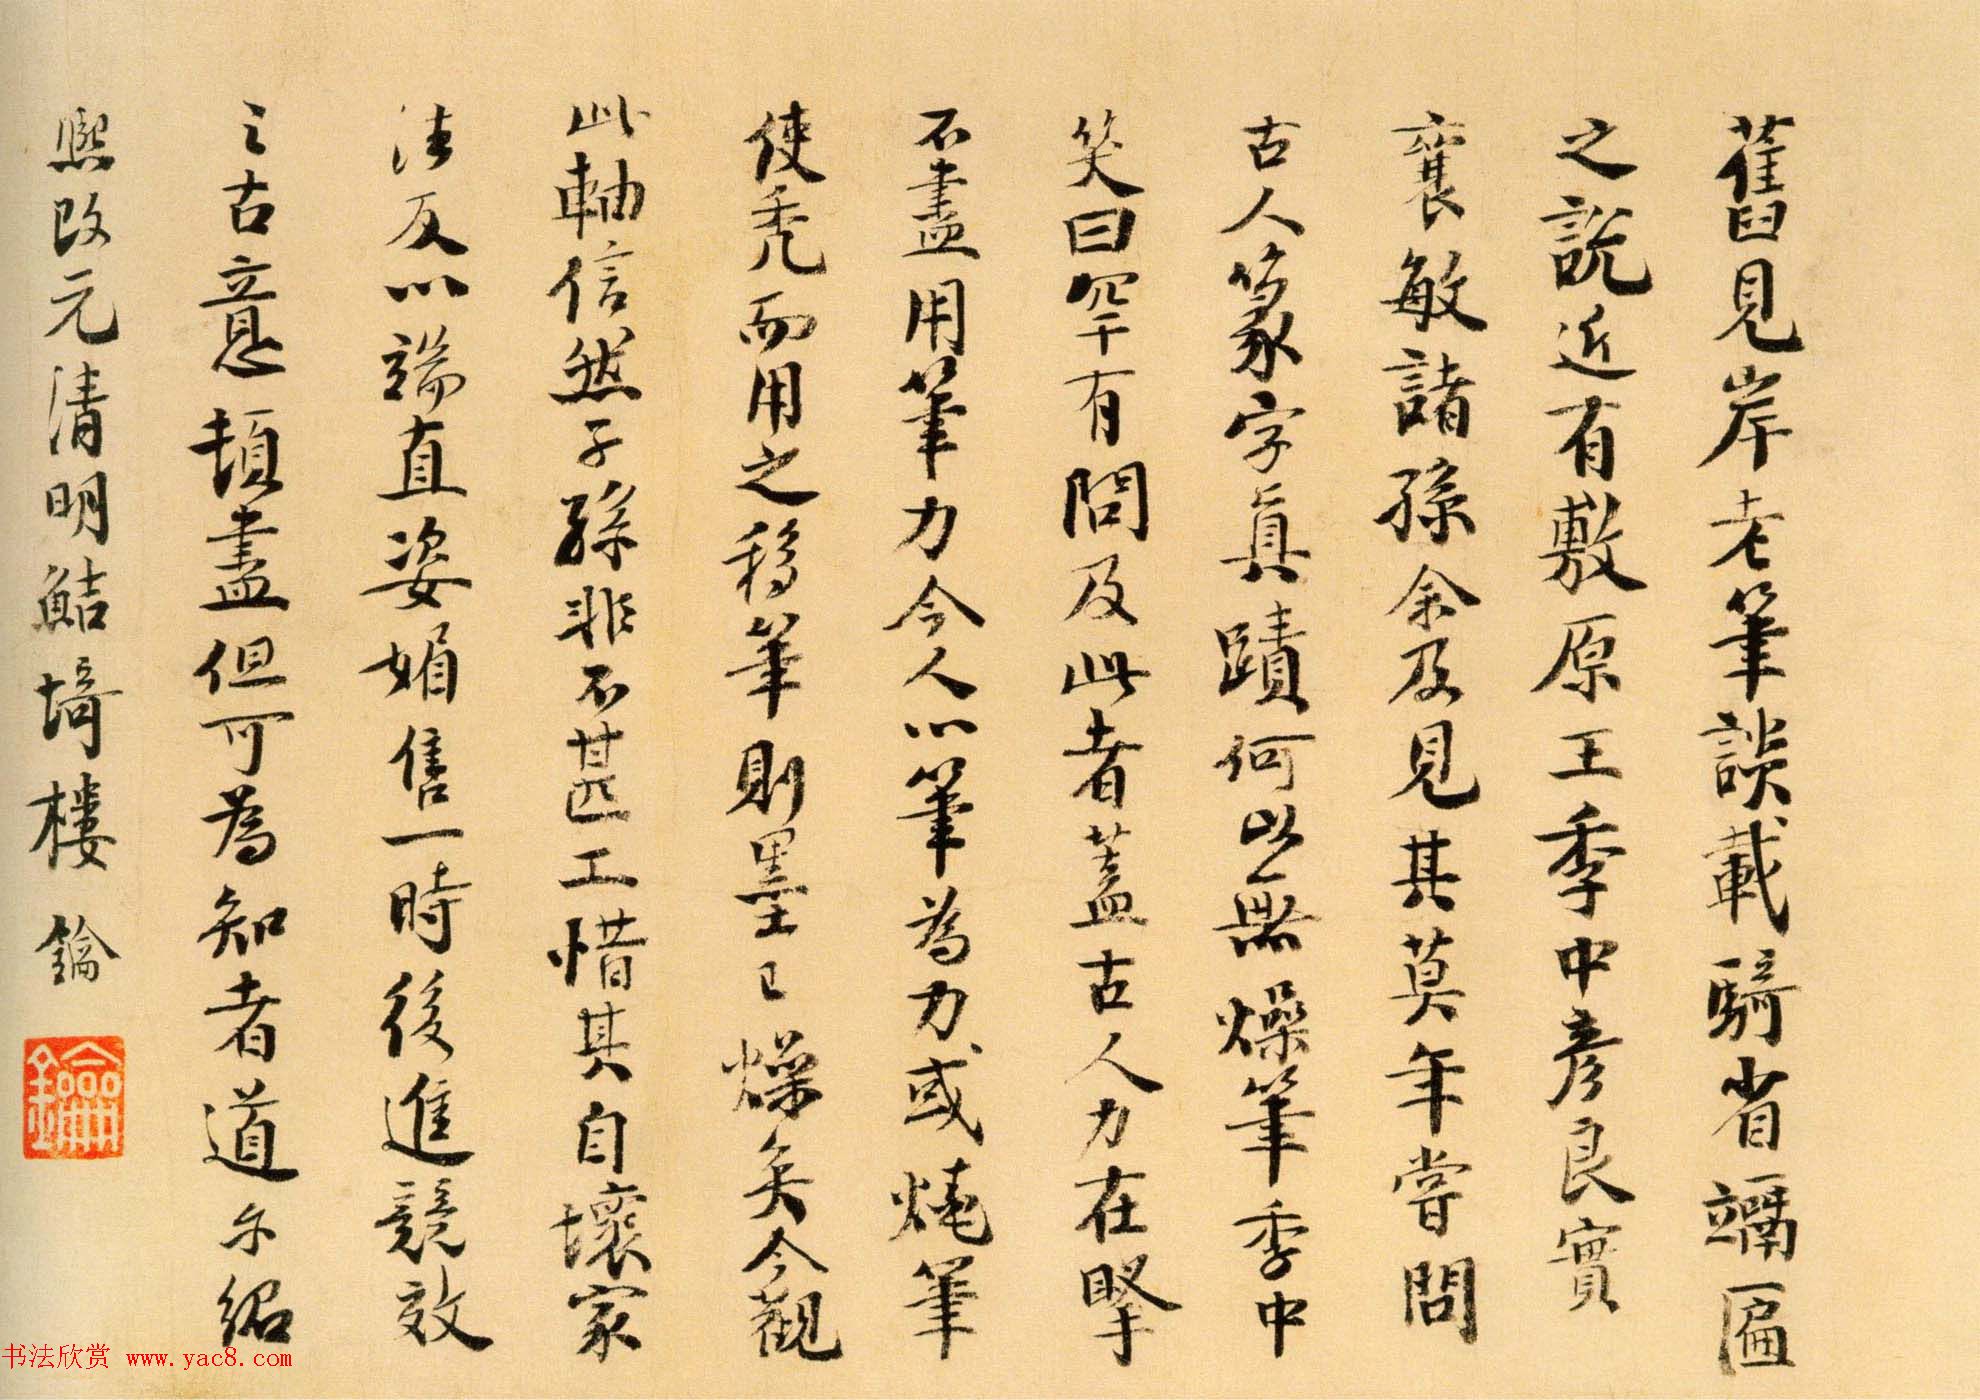 舊見岸老筆談載騎省𥫃匾
之說近有敷原王季中彥良實
襄敏諸孫余及見其莫年嘗問
古人篆字真蹟何以無燥筆季中
笑曰罕有問及此者蓋古人力在掔
不盡用筆力今人以筆為力或燒筆
使禿而用之移筆則墨已燥矣今觀
此軸信然子孫非不甚工惜其自壞家
法反以端直姿媚售一時後進競效
之古意頓盡但可為知者道尔紹
熙改元清明鮚埼樓鑰
鑰
书法欣赏 www.yac8.com